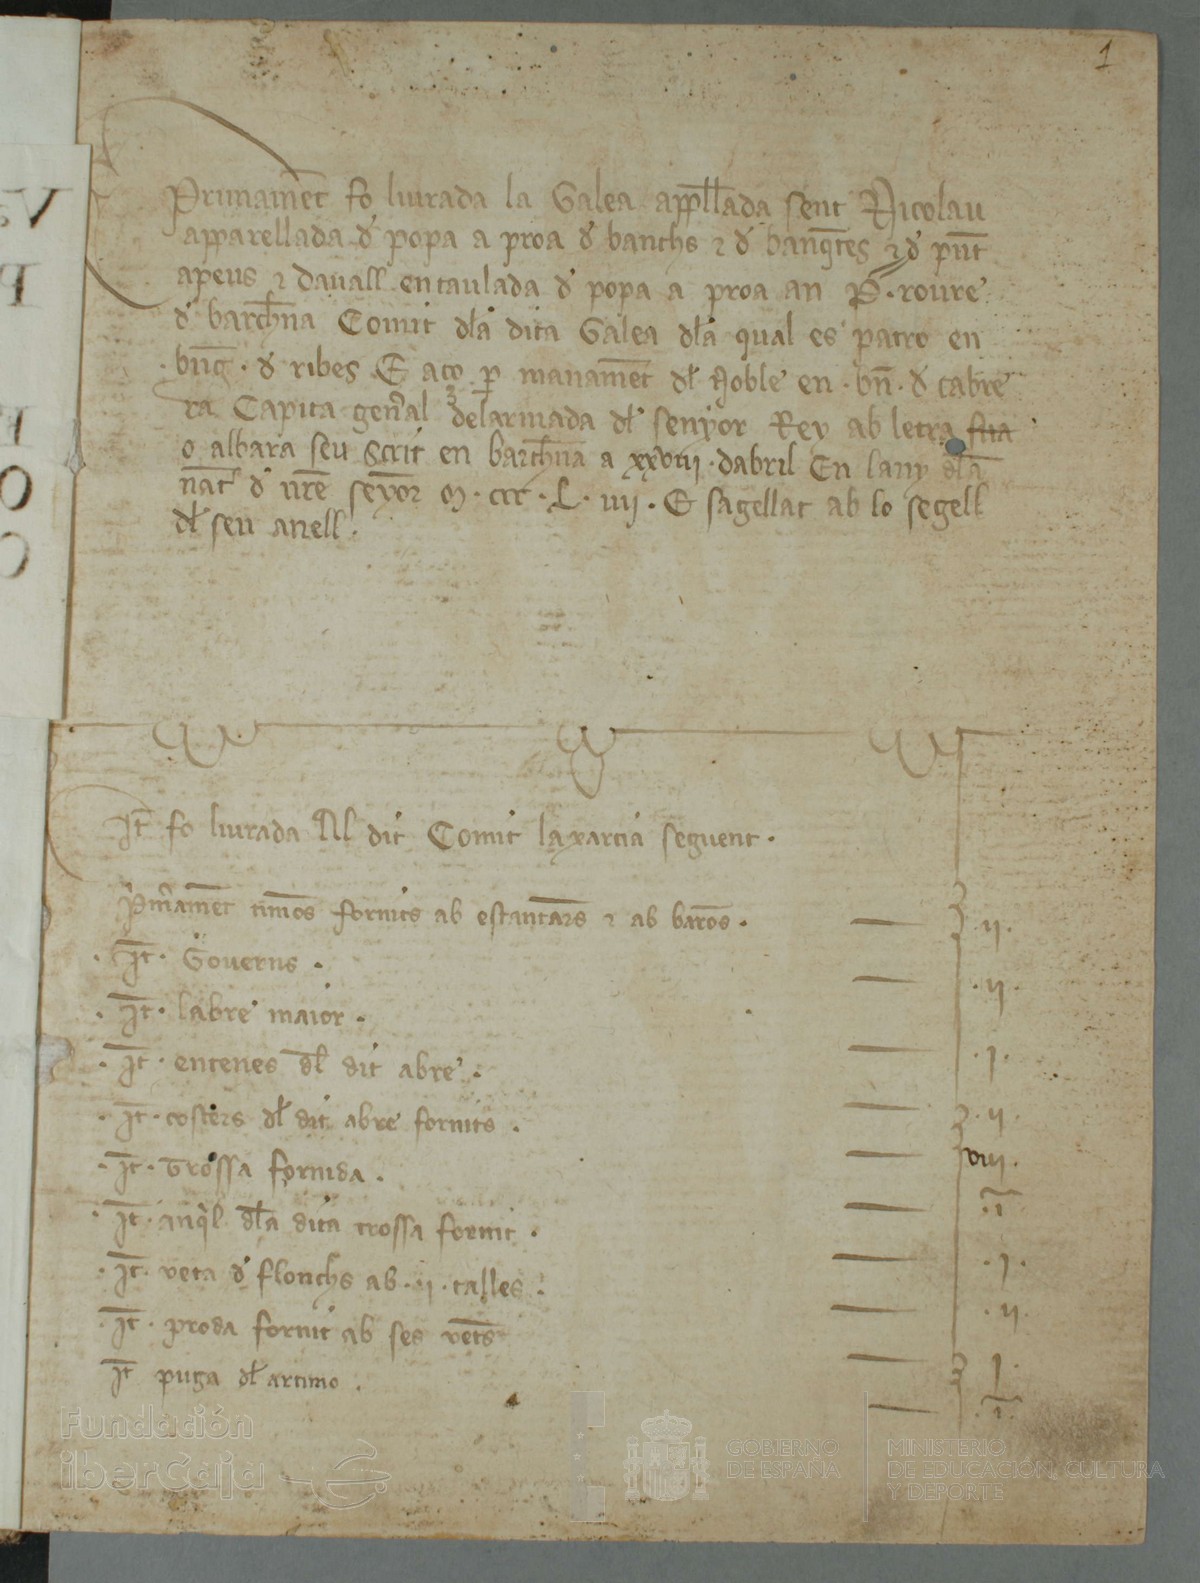 1
Primament fo liurada la Galea appellada sent Nicolau
apparellada d' popa a proa d' banchs ⁊ d' banqtes ⁊ d' punt
apeus ⁊ dauall entaulada d' popa a proa an P. roure
d' barchna Comit dla dita Galea dla qual es patro en
.bng. d' ribes E aço per manament dl Noble en .bn. d' cabre
ra Capita genal delarmada dl senyor Rey ab letra sua
o albara seu Scrit en barchna a xxviii. dabril En lany dla
nat d' nre seyor M. ccc. L. viiii. E sagellat ab lo segell
dl seu anell.
It fo liurada Al dit Comit la xarcia seguent.
Pmament timos fornits ab estantars ⁊ ab baros. .ii.
. It. Gouerns. .ii.
. It. labre maior. .i.
. It. entenes dl dit abre. .ii.
. It. costers dl dit abre fornits. viii.
. It. Trossa fornida. .i.
. It. anqil dla dita trossa fornit. .i.
. It. veta d' flonchs ab .ii. talles. .ii.
. It. proda fornit ab ses vets i.
It puga dl artimo. .i.
Fundación
iberCaja
GOBIERNO
DE ESPAÑA
MINISTERIO
DE EDUCACIÓN, CULTURA
Y DEPORTE